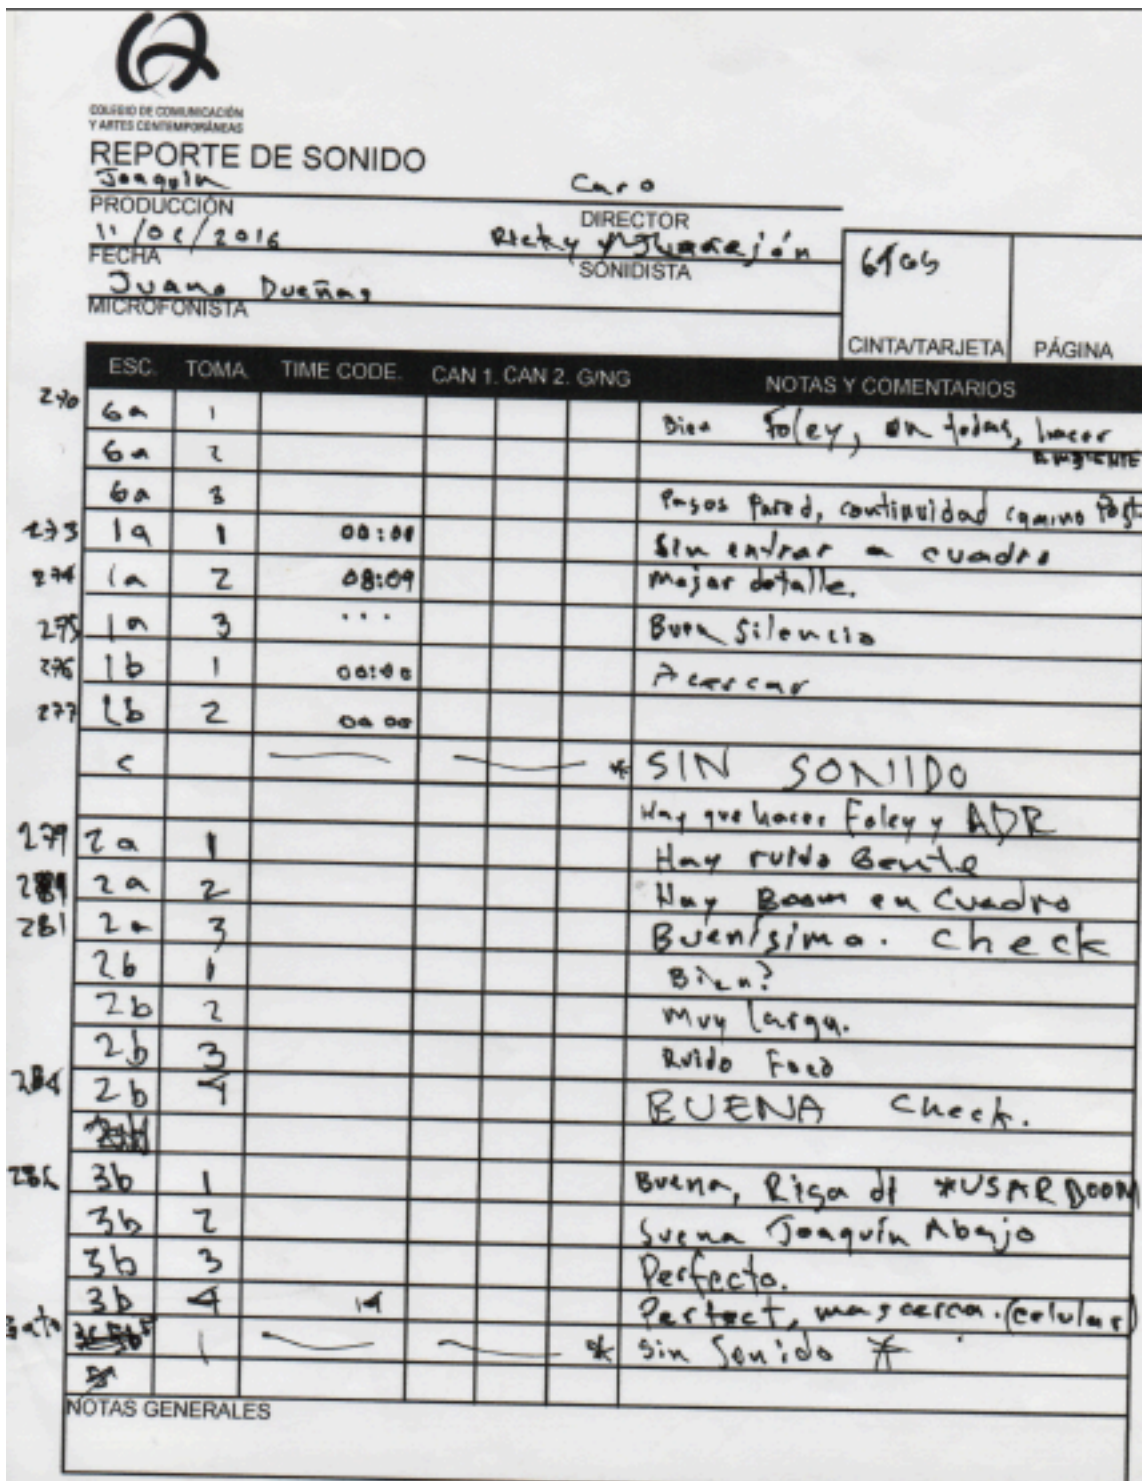 COLEGIO DE COMUNICACIÓN
Y ARTES CONTEMPORÁNEAS
REPORTE DE SONIDO
Joaquín Caro
PRODUCCIÓN DIRECTOR
11/06/2016 Ricky y Juanajón
FECHA SONIDISTA
Juano Dueñas
MICROFONISTA
CINTA/TARJETA PÁGINA
ESC. TOMA. TIME CODE. CAN 1. CAN 2. G/NG NOTAS Y COMENTARIOS
270 6a 1 Bien Foley, en todas, hacer
AMBIENTE
6a 2
6a 3 Pasos Pared, continuidad camino Post
273 1a 1 00:00 Sin entrar a cuadro
274 1a 2 08:09 Mejor detalle.
275 1a 3 ... Buen Silencio
276 1b 1 00:00 Acercar
277 1b 2 00 00
c * SIN SONIIDO
Hay que hacer Foley y ADR
279 2a 1 Hay ruido Gente
2a 2 Hay Boom en Cuadro
281 2a 3 Buenísima. Check
2b 1 Bien?
2b 2 Muy larga.
2b 3 Ruido Foco
284 2b 4 BUENA Check.
3b 1 Buena, Risa di *USAR BOOM
3b 2 Suena Joaquín Abajo
3b 3 Perfecto.
3b 4 Perfect, mas cerca. (celular)
Gato 1 * Sin Sonido *
NOTAS GENERALES